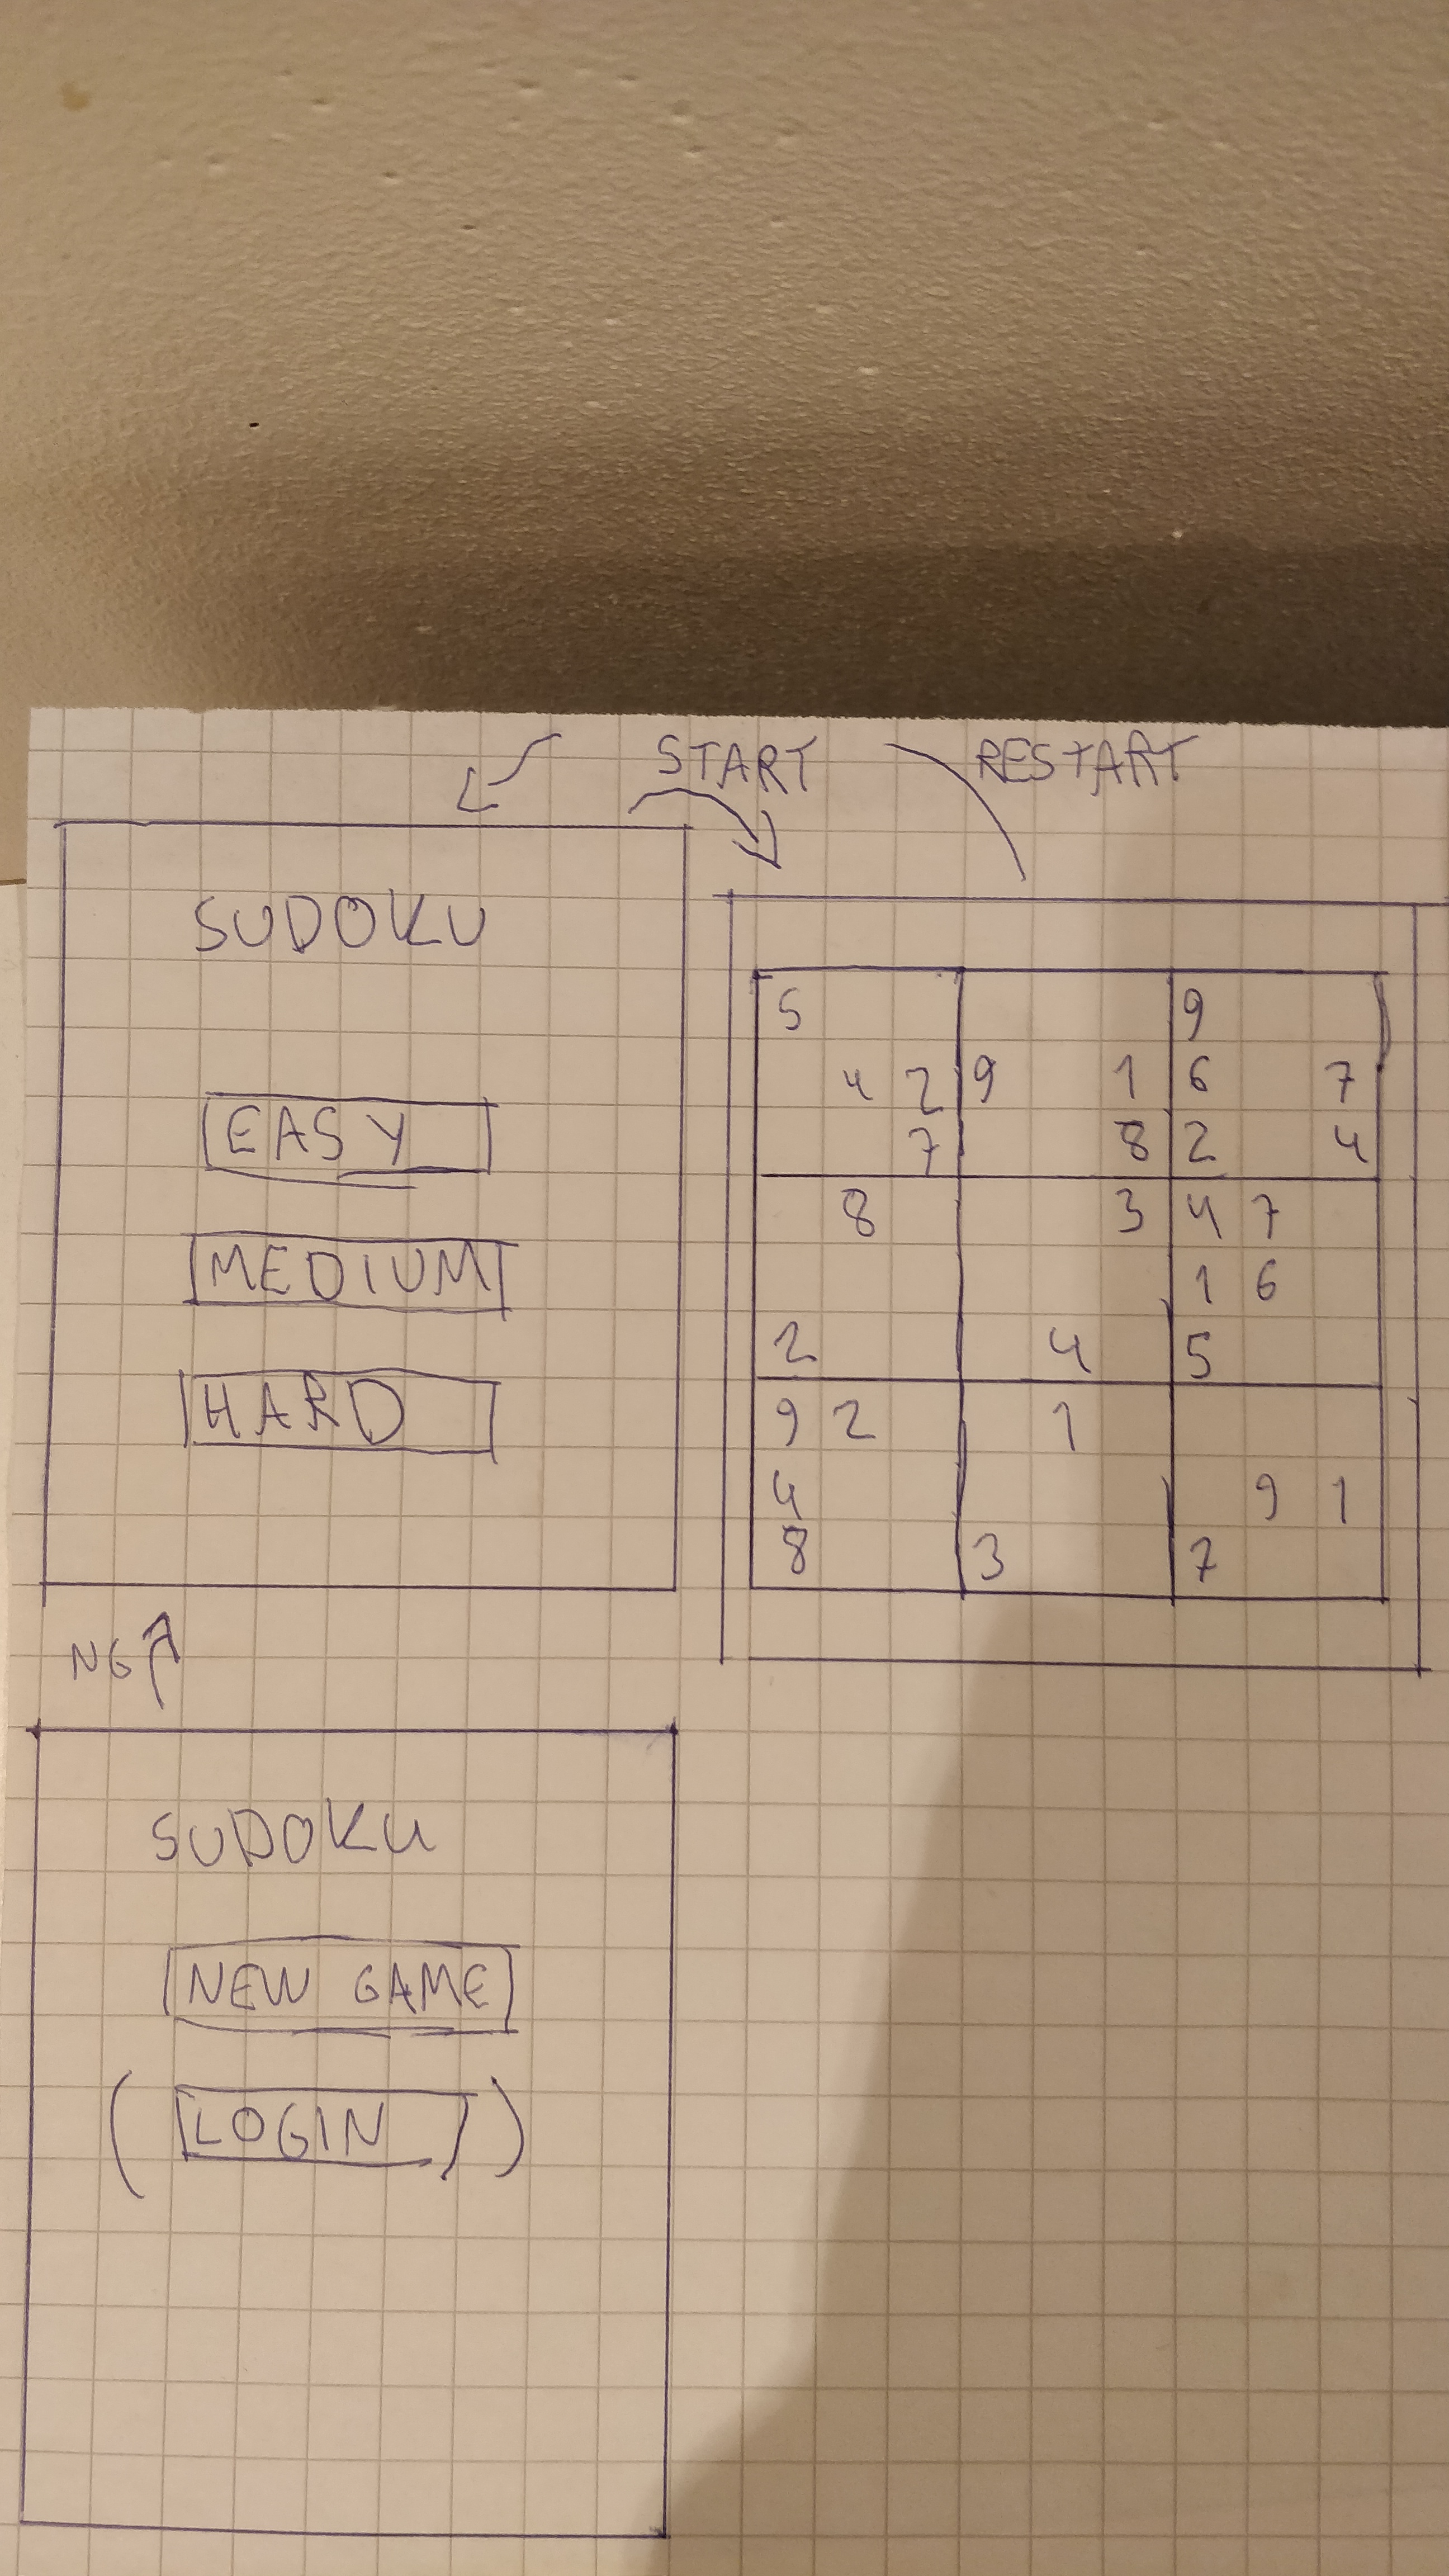 START RESTART
SUDOKU
EASY
MEDIUM
HARD
5 9
4 2 9 1 6 7
7 8 2 4
8 3 4 7
1 6
2 4 5
9 2 1
4 9 1
8 3 7
NG
SUDOKU
NEW GAME
(LOGIN)